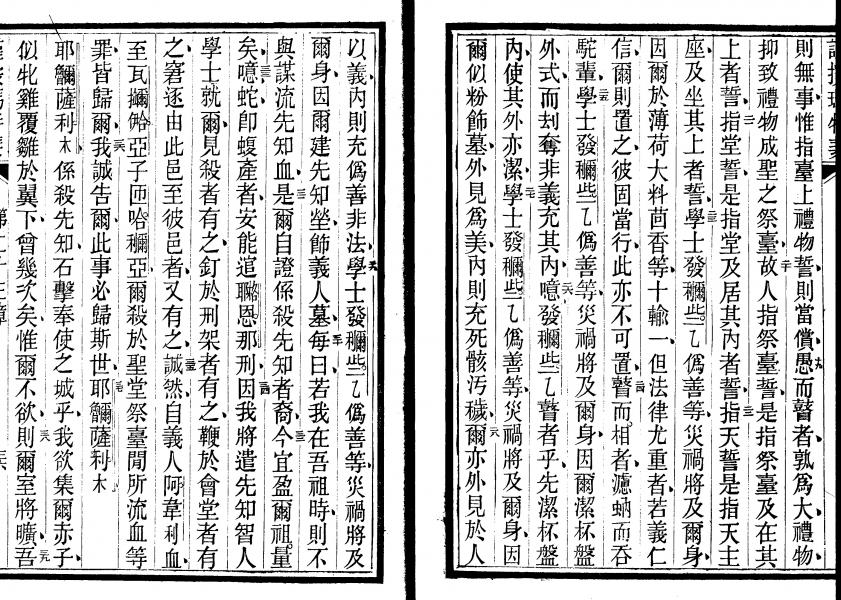 則無事惟指臺上禮物誓則當償愚而瞽者孰爲大禮物
抑致禮物成聖之祭臺故人指祭臺誓是指祭臺及在其
上者誓指堂誓是指堂及居其內者誓指天誓是指天主
座及坐其上者誓學士發穪些乚僞善等災禍將及爾身
因爾於薄荷大料茴香等十輸一但法律尤重者若義仁
信爾則置之彼固當行此亦不可置瞽而相者濾蚋而吞
駝輩學士發穪些乚僞善等災禍將及爾身因爾潔杯盤
外式而刦奪非義充其內噫發穪些乚瞽者乎先潔杯盤
內使其外亦潔學士發穪些乚僞善等災禍將及爾身因
爾似粉飾墓外見爲美內則充死骸汚穢爾亦外見於人
以義內則充僞善非法學士發穪些乚僞善等災禍將及
爾身因爾建先知塋飾義人墓每曰若我在吾祖時則不
與謀流先知血是爾自證係殺先知者裔今宜盈爾祖量
矣噫蛇卽蝮產者安能逭聮恩那刑因我將遣先知智人
學士就爾見殺者有之釘於刑架者有之鞭於會堂者有
之窘逐由此邑至彼邑者又有之誠然自義人阿韋利血
至瓦擟哈亞子匝哈穪亞爾殺於聖堂祭臺閒所流血等
罪皆歸爾我誠告爾此事必歸斯世耶䥯薩利木
耶䥯薩利木係殺先知石擊奉使之城乎我欲集爾赤子
似牝雞覆雛於翼下曾幾次矣惟爾不欲則爾室將曠吾